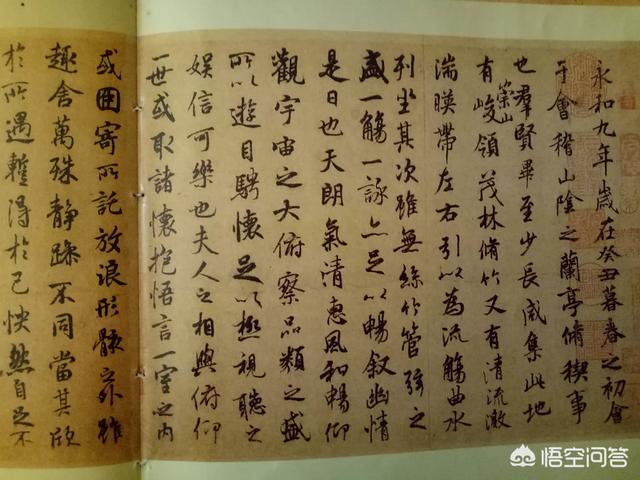 永和九年歲在癸丑暮春之初會
于會稽山陰之蘭亭脩稧事
也羣賢畢至少長咸集此地
有崇山峻領茂林脩竹又有清流激
湍暎帶左右引以為流觴曲水
列坐其次雖無絲竹管弦之
盛一觴一詠亦足以暢叙幽情
是日也天朗氣清惠風和暢仰
觀宇宙之大俯察品類之盛
所以遊目騁懷足以極視聽之
娛信可樂也夫人之相與俯仰
一世或取諸懷抱悟言一室之內
或因寄所託放浪形骸之外雖
趣舍萬殊靜躁不同當其欣
於所遇蹔得於己怏然自足不
悟空问答